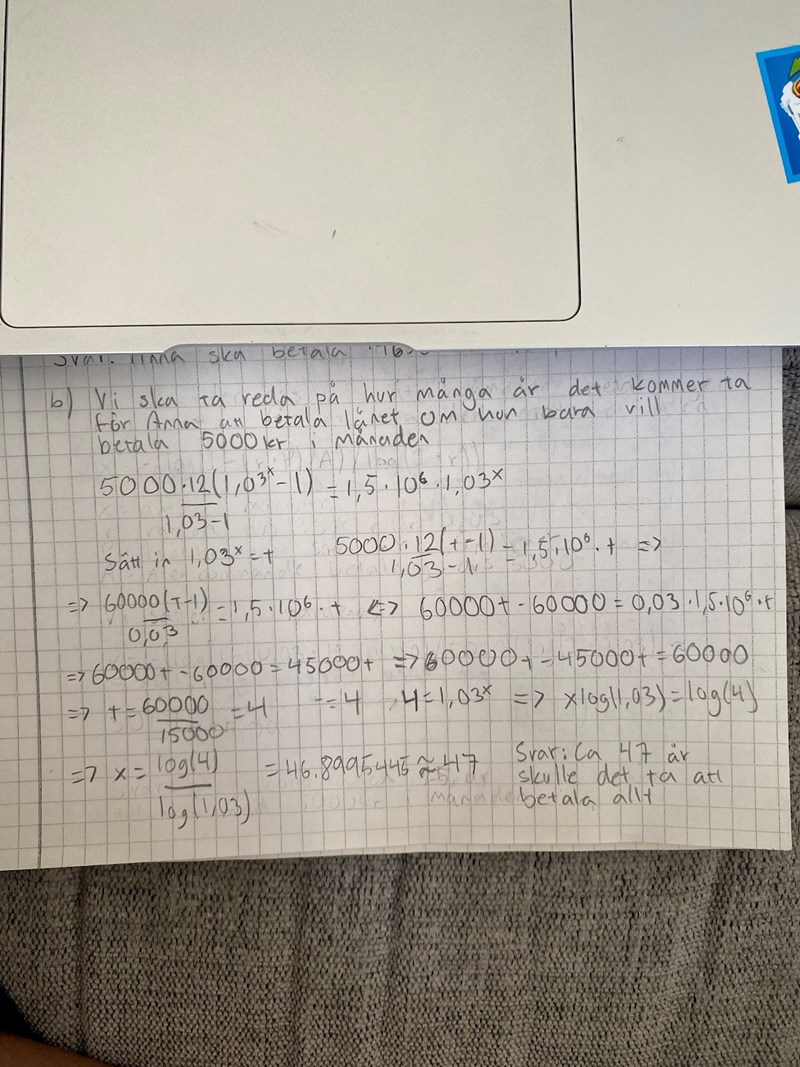 Svar: Anna ska betala
b) Vi ska ta reda på hur många år det kommer ta
för Anna att betala lånet om hon bara vill
betala 5000kr i månaden
5000·12(1,03^x-1)/(1,03-1) = 1,5·10^6·1,03^x
Sätt in 1,03^x=t 5000·12(t-1)/(1,03-1) = 1,5·10^6·t =>
=> 60000(t-1)/0,03 = 1,5·10^6·t <=> 60000t-60000 = 0,03·1,5·10^6·t
=> 60000t-60000=45000t => 60000t-45000t=60000
=> t=60000/15000=4 t=4 4=1,03^x => xlog(1,03)=log(4)
=> x=log(4)/log(1,03) =46.8995445≈47 Svar: Ca 47 år
skulle det ta att
betala allt